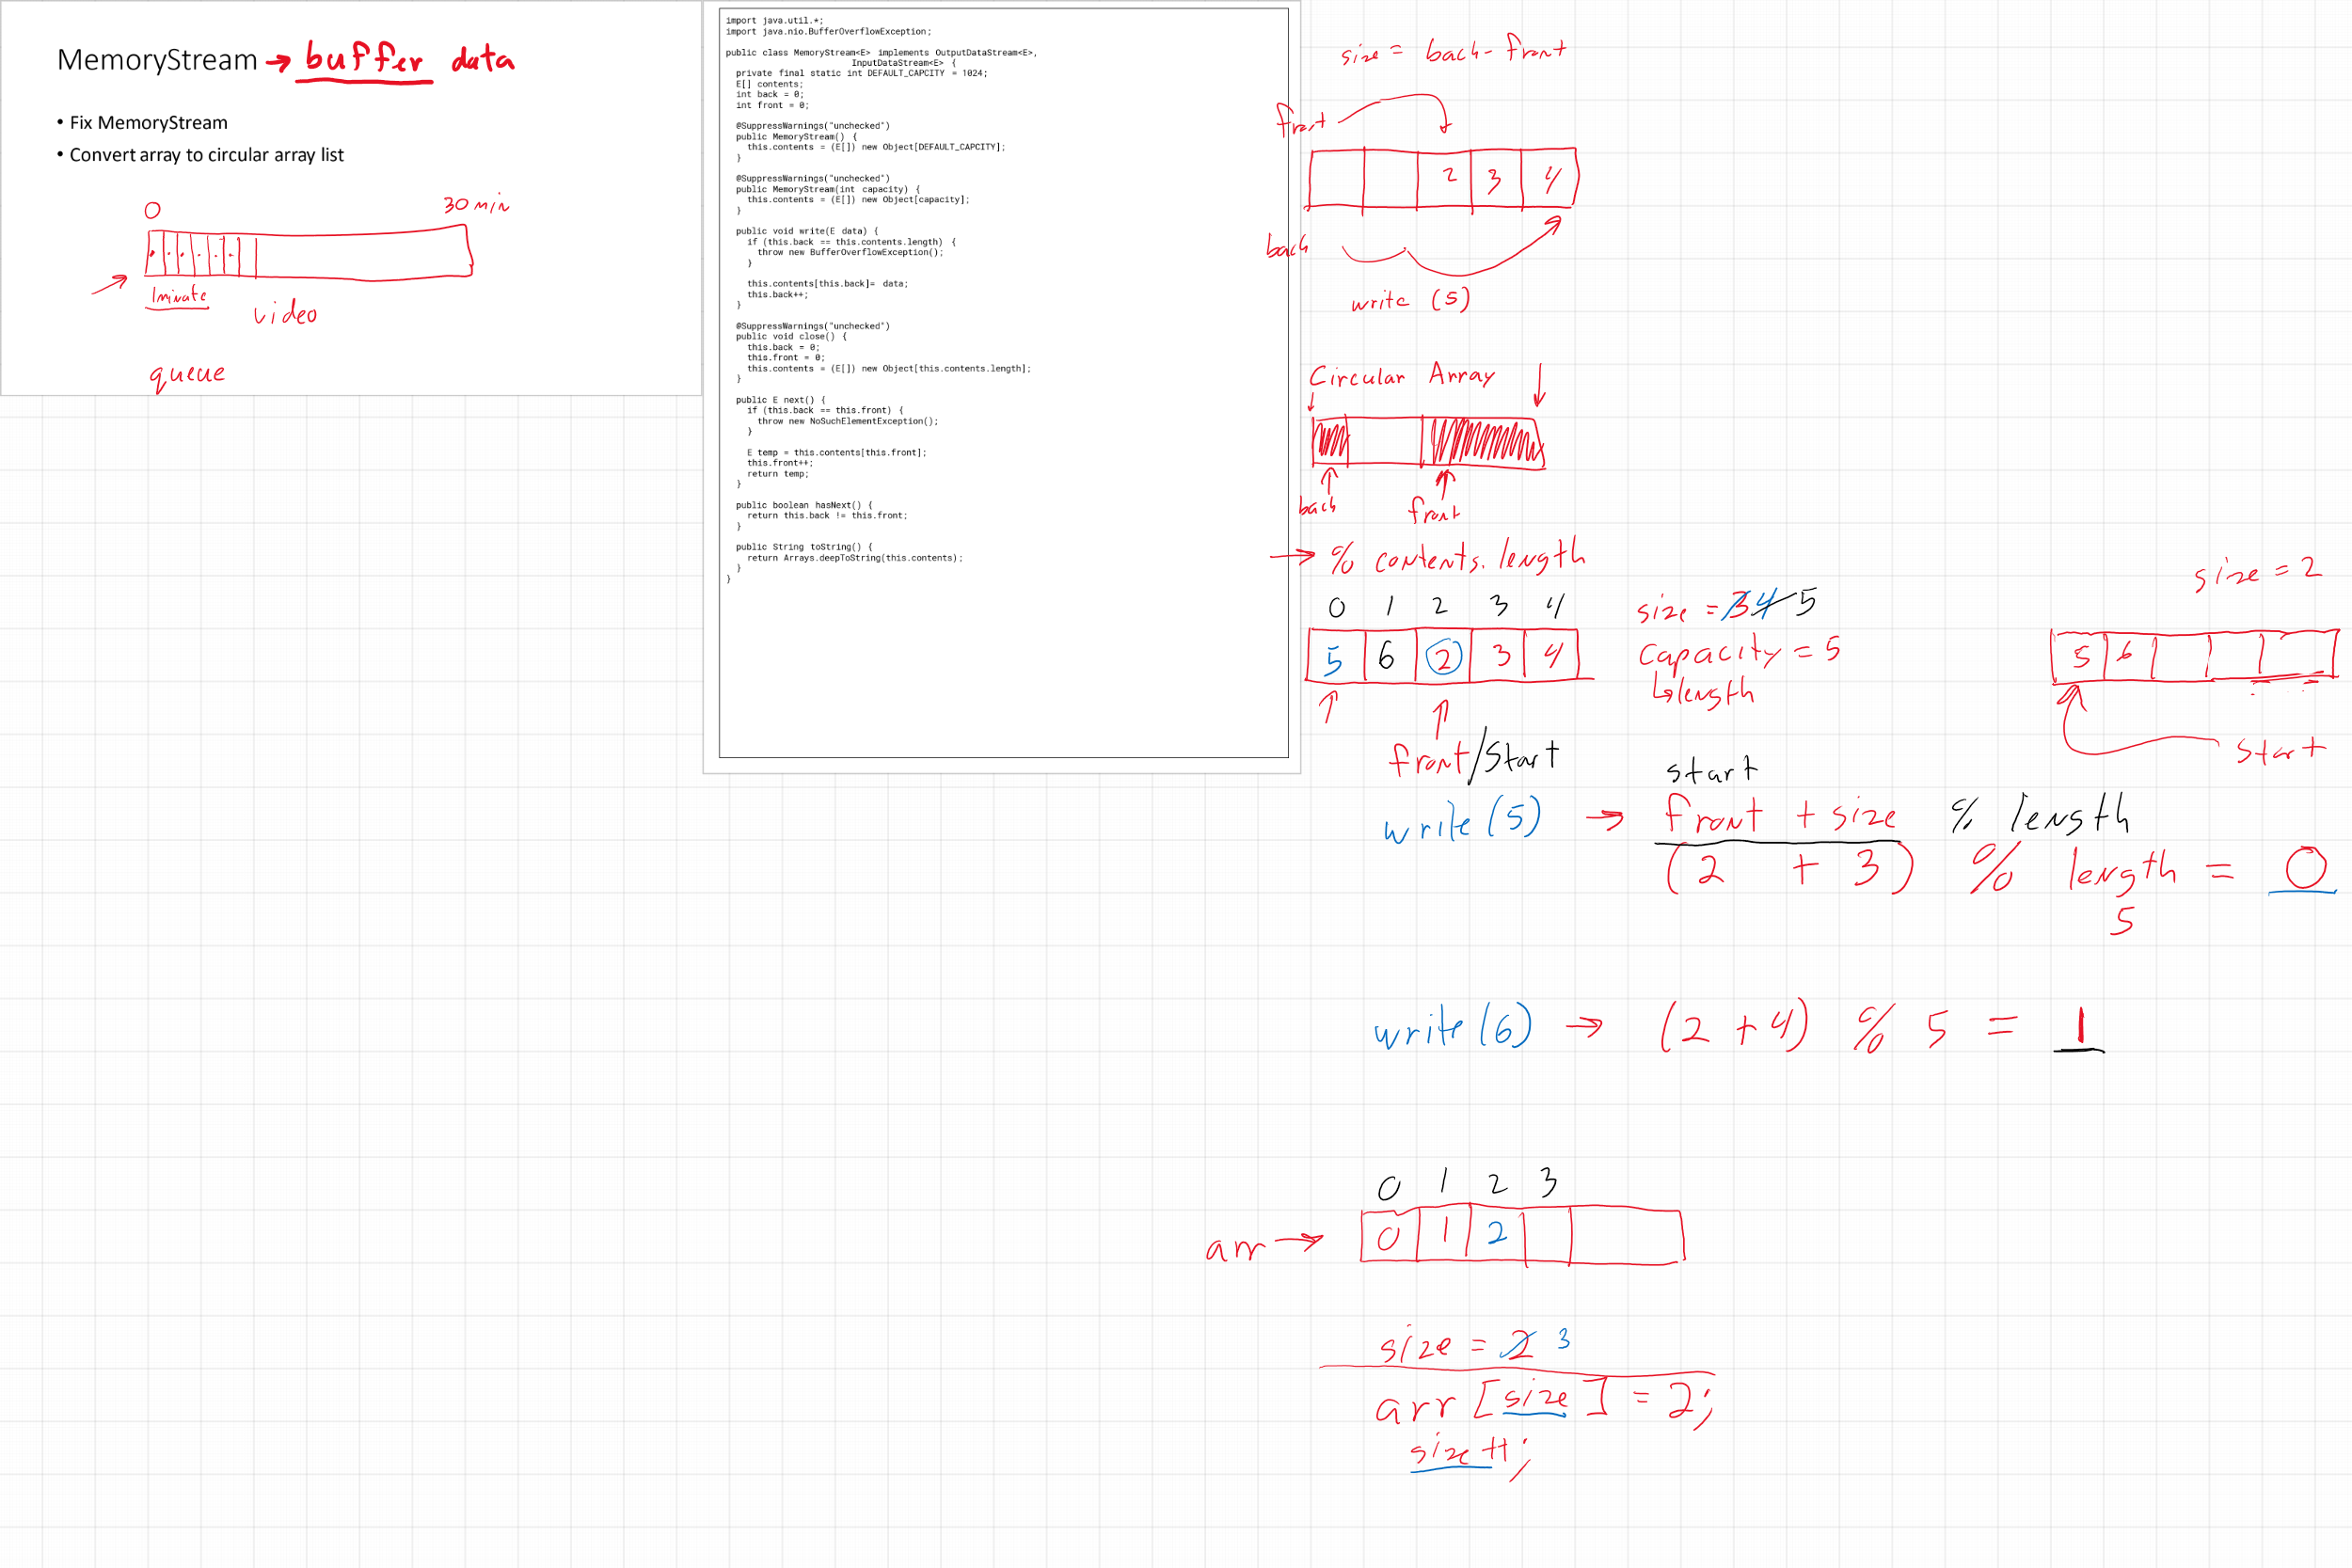 MemoryStream → buffer data
• Fix MemoryStream
• Convert array to circular array list
0 30 min
1 minute
video
queue
import java.util.*;
import java.nio.BufferOverflowException;
public class MemoryStream<E> implements OutputDataStream<E>,
InputDataStream<E> {
private final static int DEFAULT_CAPCITY = 1024;
E[] contents;
int back = 0;
int front = 0;
@SuppressWarnings("unchecked")
public MemoryStream() {
this.contents = (E[]) new Object[DEFAULT_CAPCITY];
}
@SuppressWarnings("unchecked")
public MemoryStream(int capacity) {
this.contents = (E[]) new Object[capacity];
}
public void write(E data) {
if (this.back == this.contents.length) {
throw new BufferOverflowException();
}
this.contents[this.back]= data;
this.back++;
}
@SuppressWarnings("unchecked")
public void close() {
this.back = 0;
this.front = 0;
this.contents = (E[]) new Object[this.contents.length];
}
public E next() {
if (this.back == this.front) {
throw new NoSuchElementException();
}
E temp = this.contents[this.front];
this.front++;
return temp;
}
public boolean hasNext() {
return this.back != this.front;
}
public String toString() {
return Arrays.deepToString(this.contents);
}
}
size = back - front
front
2 3 4
back
write (5)
Circular Array
back front
→ % contents.length
0 1 2 3 4
5 6 2 3 4
size = 3 4 5
capacity = 5
↳ length
front/start
size = 2
5 6
start
start
write (5) → front + size % length
(2 + 3) % length = 0
5
write (6) → (2 + 4) % 5 = 1
0 1 2 3
arr → 0 1 2
size = 2 3
arr [size] = 2;
size ++;